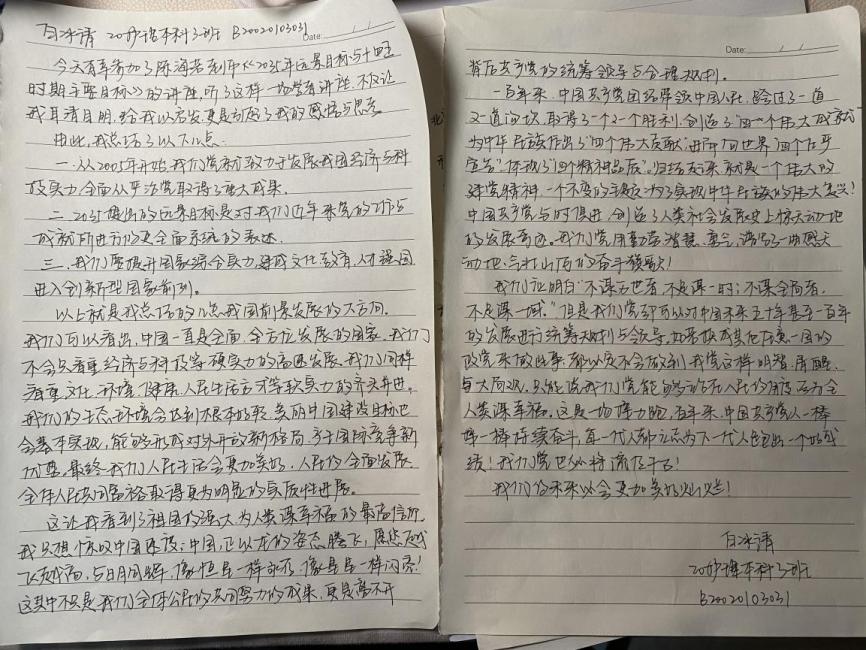 白冰清 20护理本科3班 B20020103031
Date: / /
今天有幸参加了陈海若老师《2035年远景目标与十四五
时期主要目标》的讲座,听了这样一场党者讲座,不仅让
我耳清目明,给我以启发,更是引起了我的感悟与思考
由此,我总结了以下几点
一、从2005年开始,我们党就致力于发展我国经济与科
技实力,全面从严治党取得了重大成果.
二、2035提出的远景目标是对我们近年来党的工作与
成就所进行的更全面系统的表述.
三、我们要提升国家综合实力,建成文化、教育、人才强国
进入创新型国家前列.
以上就是我总结的几点我国前景发展的大方向.
我们可以看出,中国一直是全面、全方位发展的国家.我们
不会只看重经济与科技等硬实力的高速发展,我们同样
看重文化、环境、健康、人民生活方式等软实力的齐头并进.
我们的生态环境会达到根本好转,美丽中国建设目标也
会基本实现,能够形成对外开放新格局,予于国际竞争新
优势.最终我们人民生活会更加美好,人民的全面发展、
全体人民共同富裕取得更为明显的实质性进展.
这让我看到了祖国的强大,为人类谋幸福的最高信仰.
我只想惊叹中国建设:中国,正以龙的姿态腾飞,愿您越
飞越高,与日月同辉,像恒星一样永存,像星星一样闪亮!
这其中不只是我们全体公民的共同努力的成果,更是离不开
Date: / /
背后共产党的统筹领导与合理规划.
一百年来,中国共产党团结带领中国人民,跨过了一道
又一道沟坎,取得了一个又一个胜利,创造了"四个伟大成就"
为中华民族作出了"四个伟大贡献",进而向世界"四个庄严
宣告",体现了"四个精神品质".归结起来,就是一个伟大的
建党精神,一个不变的主题:为了实现中华民族的伟大复兴!
中国共产党与时俱进,创造了人类社会发展史上惊天动地
的发展奇迹.我们党用勤劳、智慧、勇气,谱写了一曲感天
动地、气壮山河的奋斗赞歌!
我们应明白"不谋万世者,不足谋一时;不谋全局者,
不足谋一域."但是我们党却可以对中国未来五十年甚至一百年
的发展进行统筹规划与领导,如若换成其他任意一国的
政党来做此事,都必定不会做到我党这样明智、清醒、
与大局观.只能说我们党能够站在人民的角度而为全
人类谋幸福.这是一场接力跑,百年来,中国共产党人一棒
接一棒持续奋斗,每一代人都立志为下一代人跑出一个好成
绩!我们党也必将流传千古!
我们的未来必会更加美好灿烂!
白冰清
20护理本科3班
B20020103031